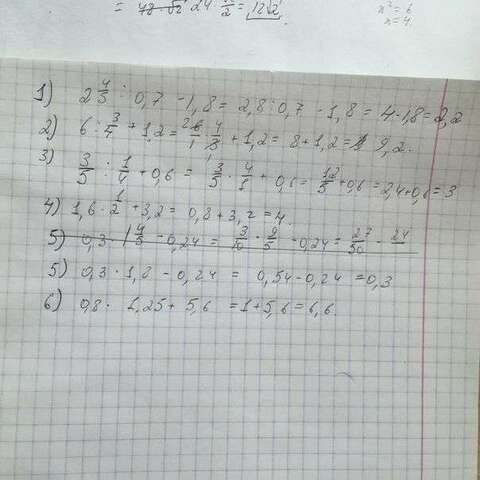 = 24 · √2/2 = 12√2.
x² = 6
x = 4.
1) 2 4/5 : 0,7 - 1,8 = 2,8 : 0,7 - 1,8 = 4 - 1,8 = 2,2
2) 6 : 3/4 + 1,2 = 6/1 · 4/3 + 1,2 = 8 + 1,2 = 9,2.
3) 3/5 : 1/4 + 0,6 = 3/5 · 4/1 + 0,6 = 12/5 + 0,6 = 2,4 + 0,6 = 3
4) 1,6 · 1/2 + 3,2 = 0,8 + 3,2 = 4.
5) 0,3 · 1 4/5 - 0,24 = 3/10 · 9/5 - 0,24 = 27/50 - 24
5) 0,3 · 1,8 - 0,24 = 0,54 - 0,24 = 0,3
6) 0,8 · 1,25 + 5,6 = 1 + 5,6 = 6,6.